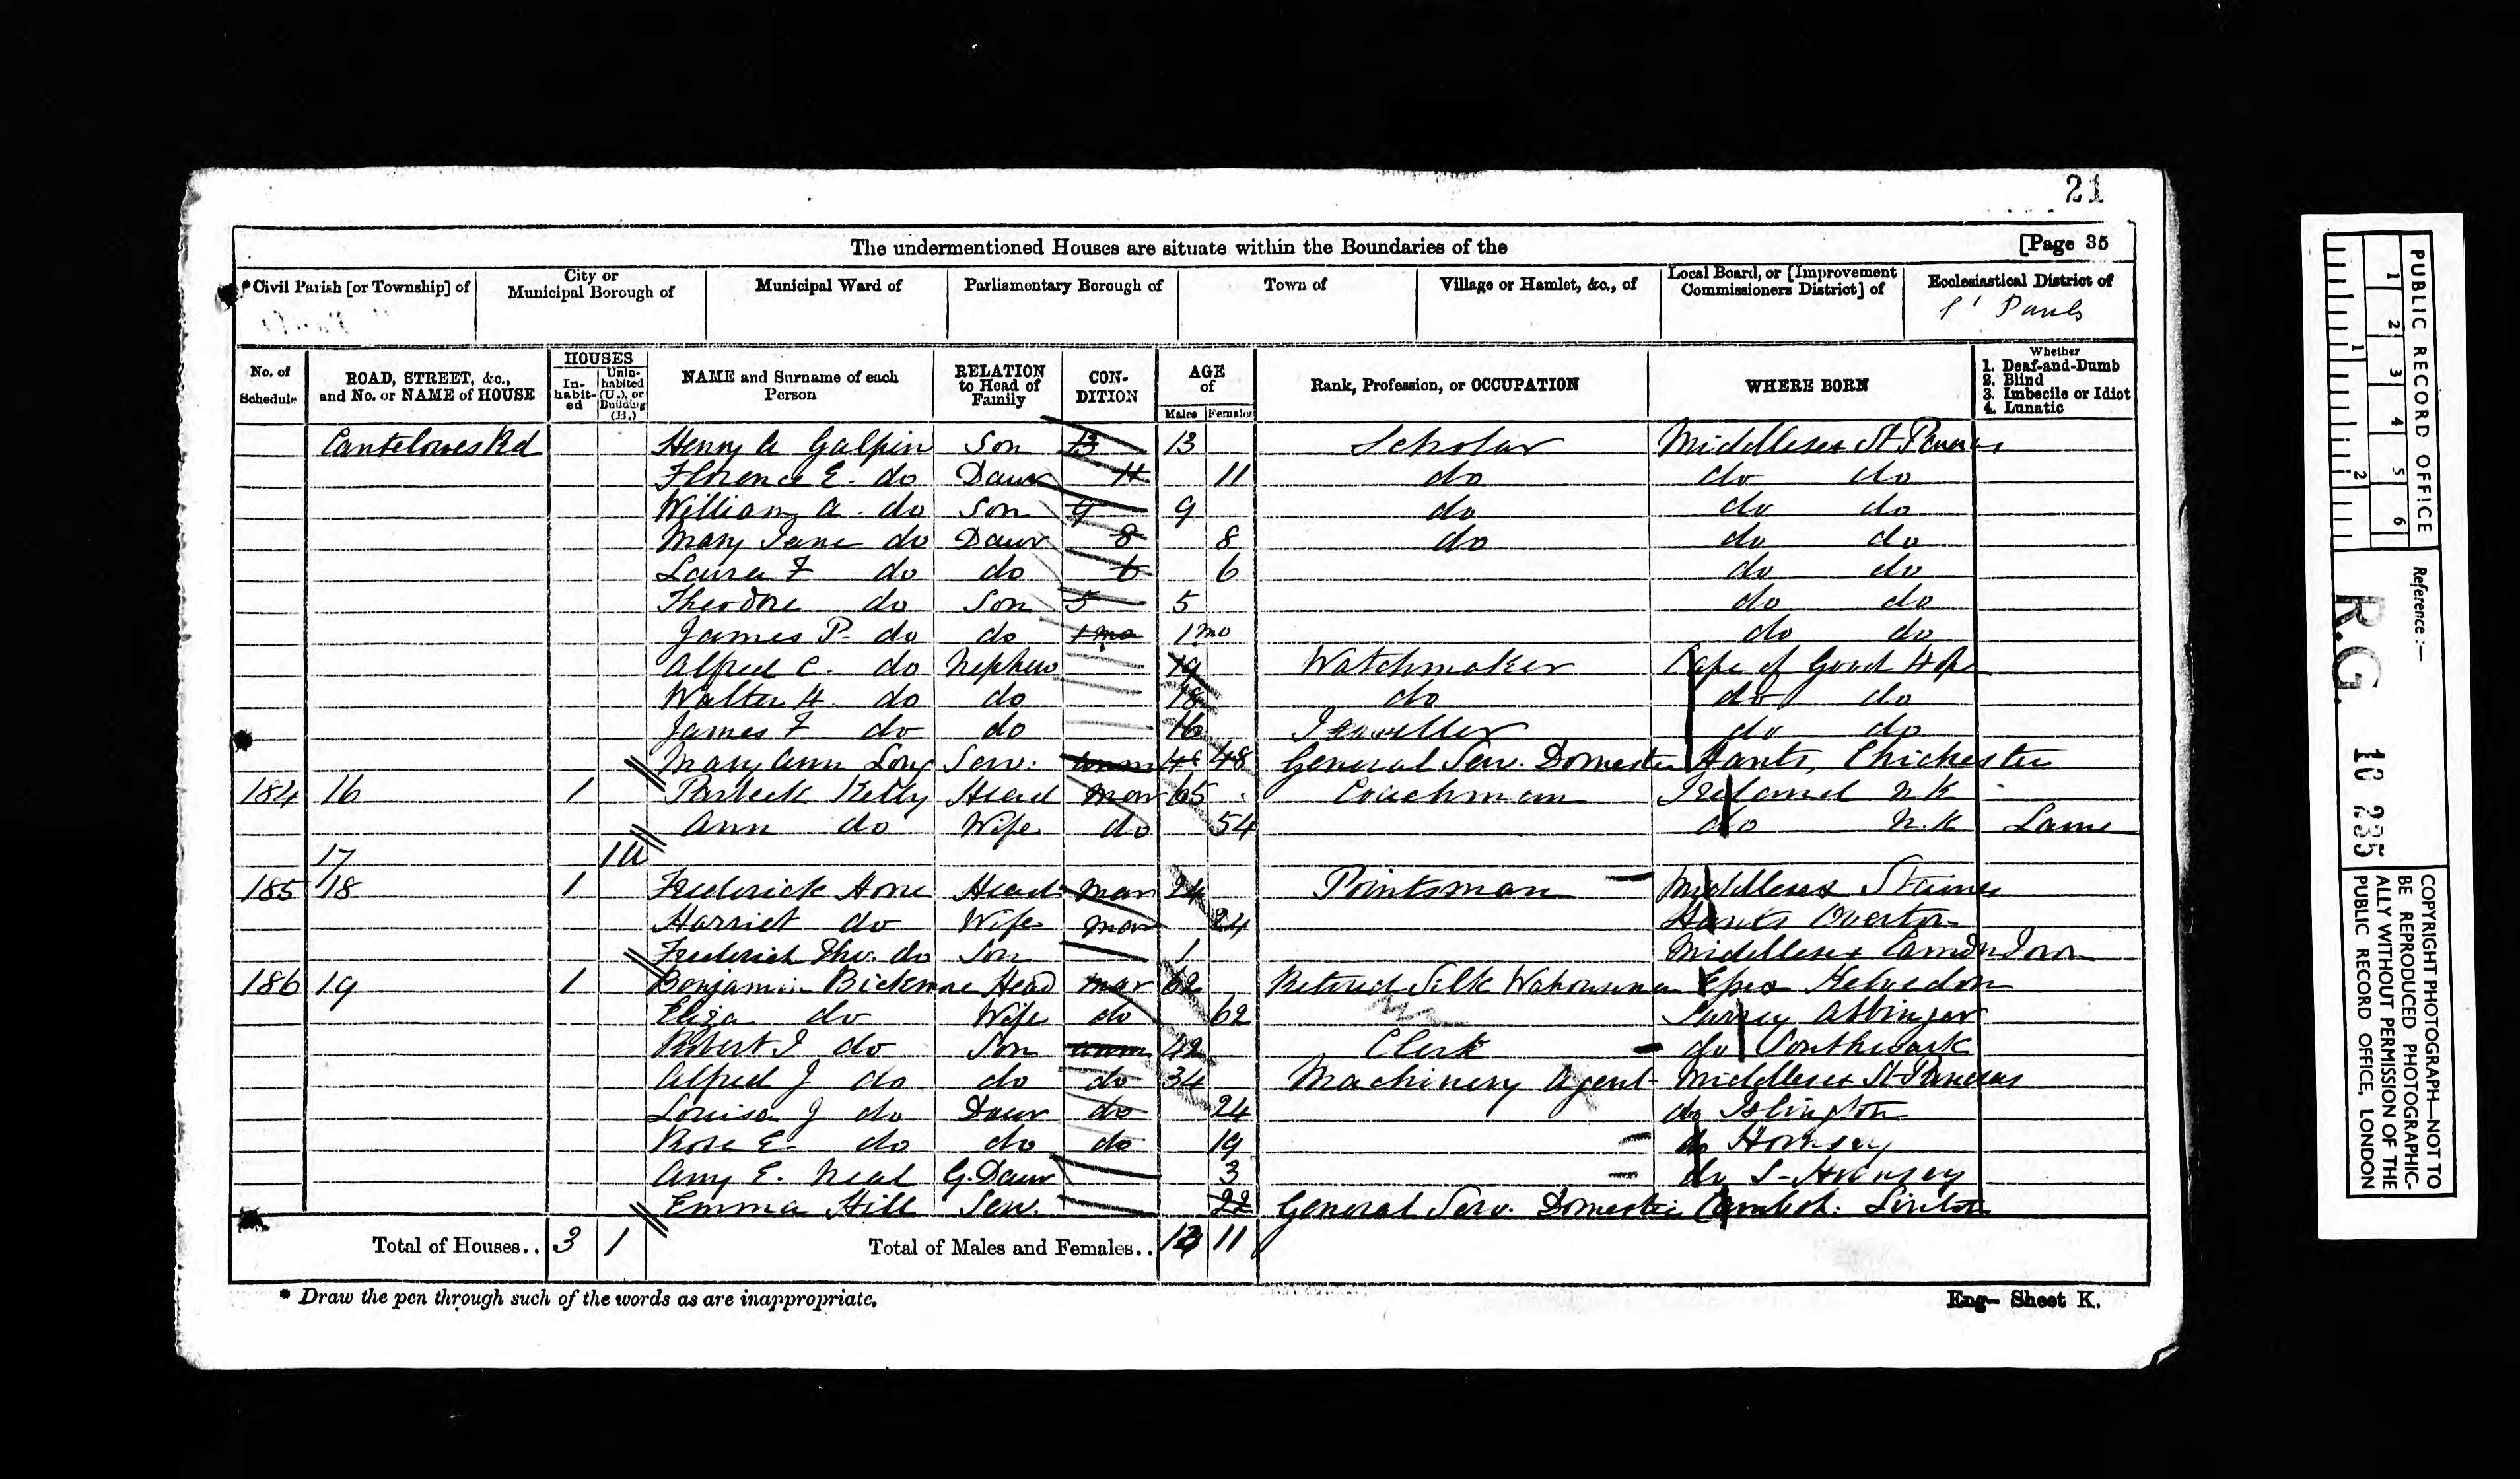 21
The undermentioned Houses are situate within the Boundaries of the [Page 35
Civil Parish [or Township] of City or Municipal Borough of Municipal Ward of Parliamentary Borough of Town of Village or Hamlet, &c., of Local Board, or [Improvement Commissioners District] of Ecclesiastical District of
St Pauls
No. of Schedule ROAD, STREET, &c., and No. or NAME of HOUSE HOUSES In-habit-ed Unin-habited (U.), or Building (B.) NAME and Surname of each Person RELATION to Head of Family CON-DITION AGE of Males Females Rank, Profession, or OCCUPATION WHERE BORN Whether 1. Deaf-and-Dumb 2. Blind 3. Imbecile or Idiot 4. Lunatic
Cantelowes Rd Henry A Galpin Son 13 13 Scholar Middlesex St Pancras
Florence E. do Daur 11 11 do do do
William A. do Son 9 9 do do do
Mary Jane do Daur 8 8 do do do
Laura F do do 6 6 do do
Theodore do Son 5 5 do do
James P. do do 1 mo 1 mo do do
Alfred C. do Nephew 19 Watchmaker Cape of Good Hope
Walter H. do do 18 do do do
James F do do 16 Jeweller do do
Mary Ann Long Serv. unm 48 48 General Serv. Domestic Hants, Chichester
184 16 1 Kelly Head mar 65 Coachman Ireland N.K
Ann do Wife do 54 do N.K Lame
17 1U
185 18 1 Frederick Hone Head mar 24 Pointsman Middlesex Staines
Harriet do Wife mar 24 Hants Overton
Frederick Tho. do Son 1 Middlesex Camdn Town
186 19 1 Benjamin Bickmore Head mar 62 Retired Silk Essex Kelvedon
Eliza do Wife do 62 Surrey Abbinger
Robert J do Son unm Clerk do Southwark
Alfred J do do do 34 Machinery Agent Middlesex St Pancras
Louisa J do Daur do 24 do Islington
Rose E. do do do 19 do Hornsey
Amy E. Neal G. Daur 3 do S. Hornsey
Emma Hill Serv. 22 General Serv. Domestic Cambsh. Linton
Total of Houses.. 3 1 Total of Males and Females.. 13 11
* Draw the pen through such of the words as are inappropriate.
Eng- Sheet K.
PUBLIC RECORD OFFICE
1 2 3 4 5 6
1 2
Reference :-
R.G. 10 235
COPYRIGHT PHOTOGRAPH—NOT TO
BE REPRODUCED PHOTOGRAPHIC-
ALLY WITHOUT PERMISSION OF THE
PUBLIC RECORD OFFICE, LONDON